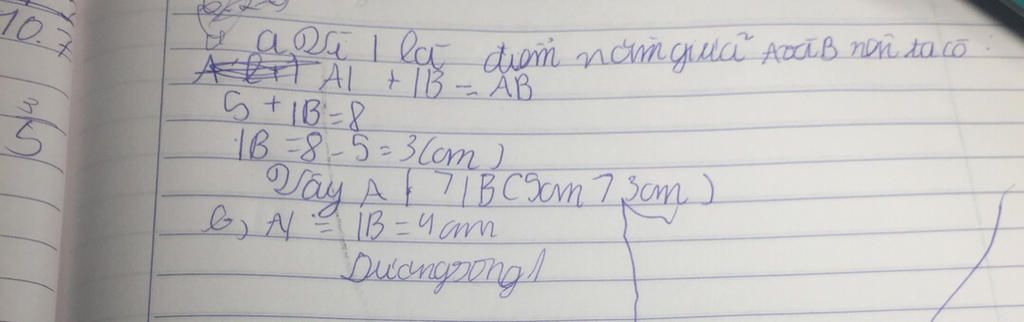 10.7
3
5
a Vì I là điểm nằm giữa A và B nên ta có:
AI + IB = AB
5 + IB = 8
IB = 8 - 5 = 3 (cm)
Vậy AI > IB (5cm > 3cm)
b, AI = IB = 4cm